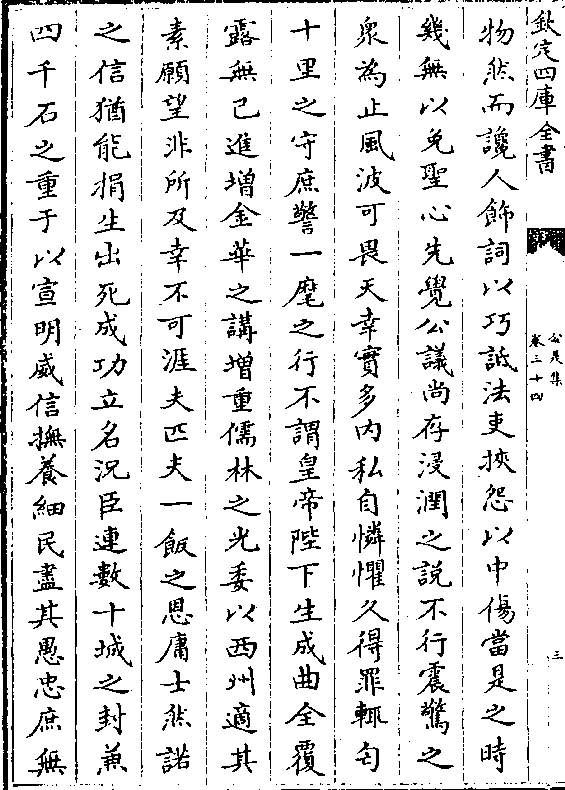 欽定四庫全書
公是集
卷三十四
三
物然而讒人飾詞以巧詆法吏挾怨以中傷當是之時
幾無以免聖心先覺公議尚存浸潤之說不行震驚之
衆為止風波可畏天幸實多内私自憐懼久得罪輒匄
十里之守庶警一麾之行不謂皇帝陛下生成曲全覆
露無已進增金華之講增重儒林之光委以西州適其
素願望非所及幸不可涯夫匹夫一飯之恩庸士然諾
之信猶能捐生出死成功立名況臣連數十城之封兼
四千石之重于以宣明威信撫養細民盡其愚忠庶無